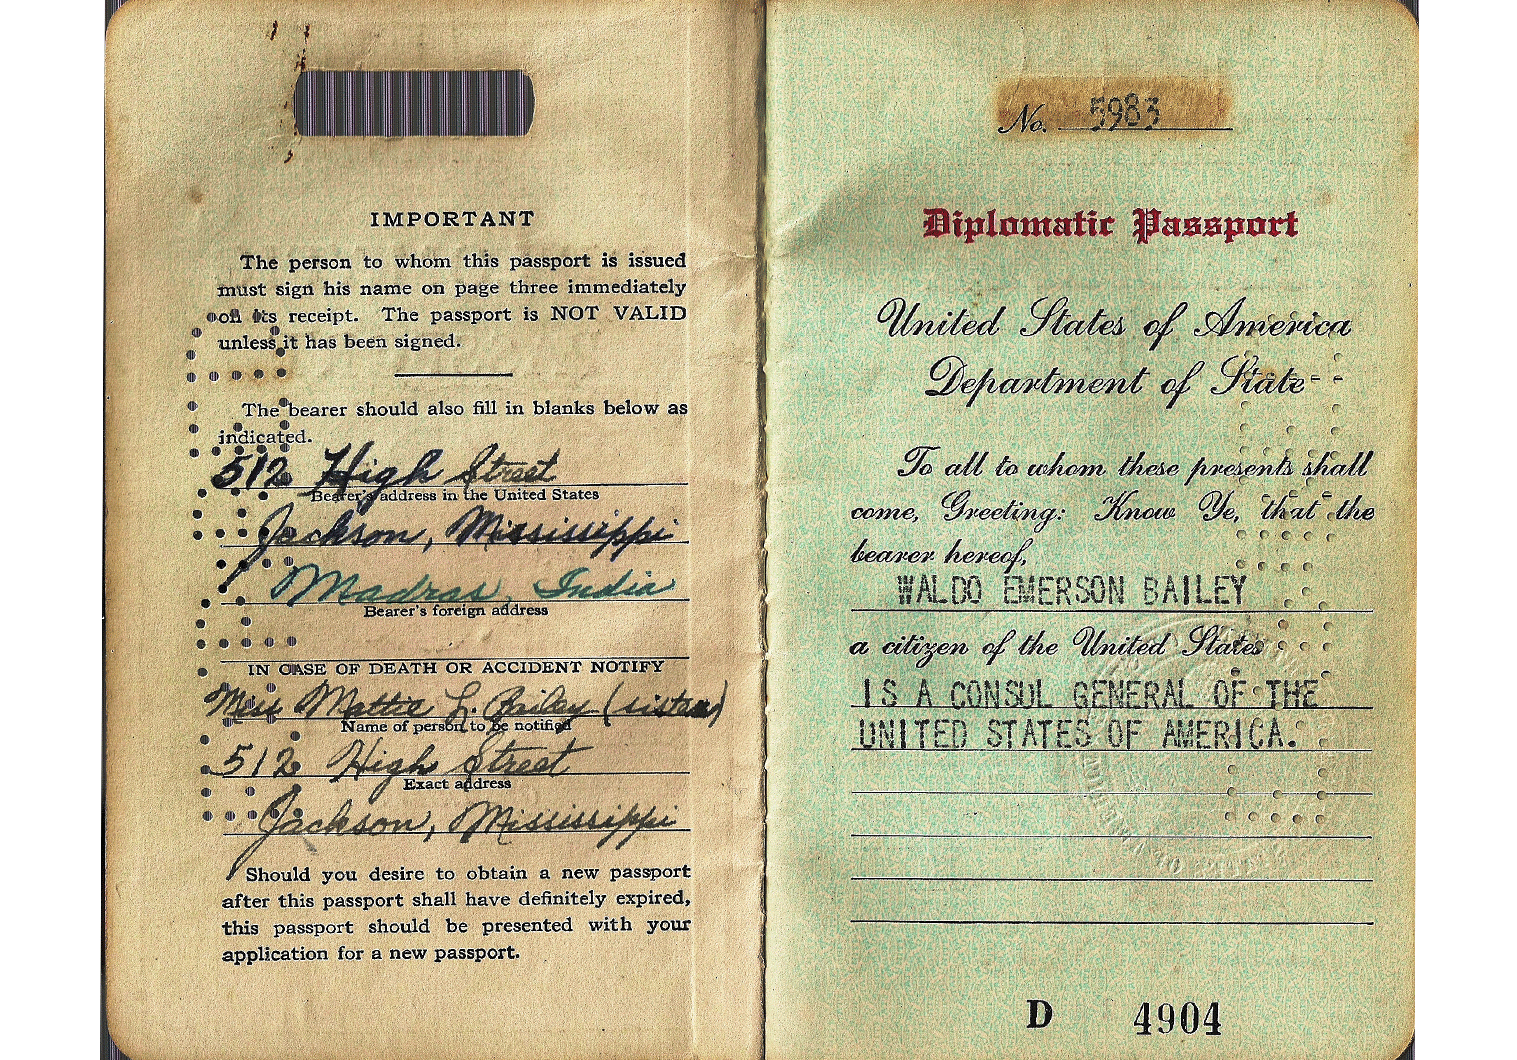 IMPORTANT
The person to whom this passport is issued
must sign his name on page three immediately
on its receipt. The passport is NOT VALID
unless it has been signed.
The bearer should also fill in blanks below as
indicated.
512 High Street
Bearer's address in the United States
Jackson, Mississippi
Madras, India
Bearer's foreign address
IN CASE OF DEATH OR ACCIDENT NOTIFY
Miss Mattie L. Bailey (sister)
Name of person to be notified
512 High Street
Exact address
Jackson, Mississippi
Should you desire to obtain a new passport
after this passport shall have definitely expired,
this passport should be presented with your
application for a new passport.
No. 5983
Diplomatic Passport
United States of America
Department of State
To all to whom these presents shall
come, Greeting: Know Ye, that the
bearer hereof,
WALDO EMERSON BAILEY
a citizen of the United States
IS A CONSUL GENERAL OF THE
UNITED STATES OF AMERICA.
D 4904